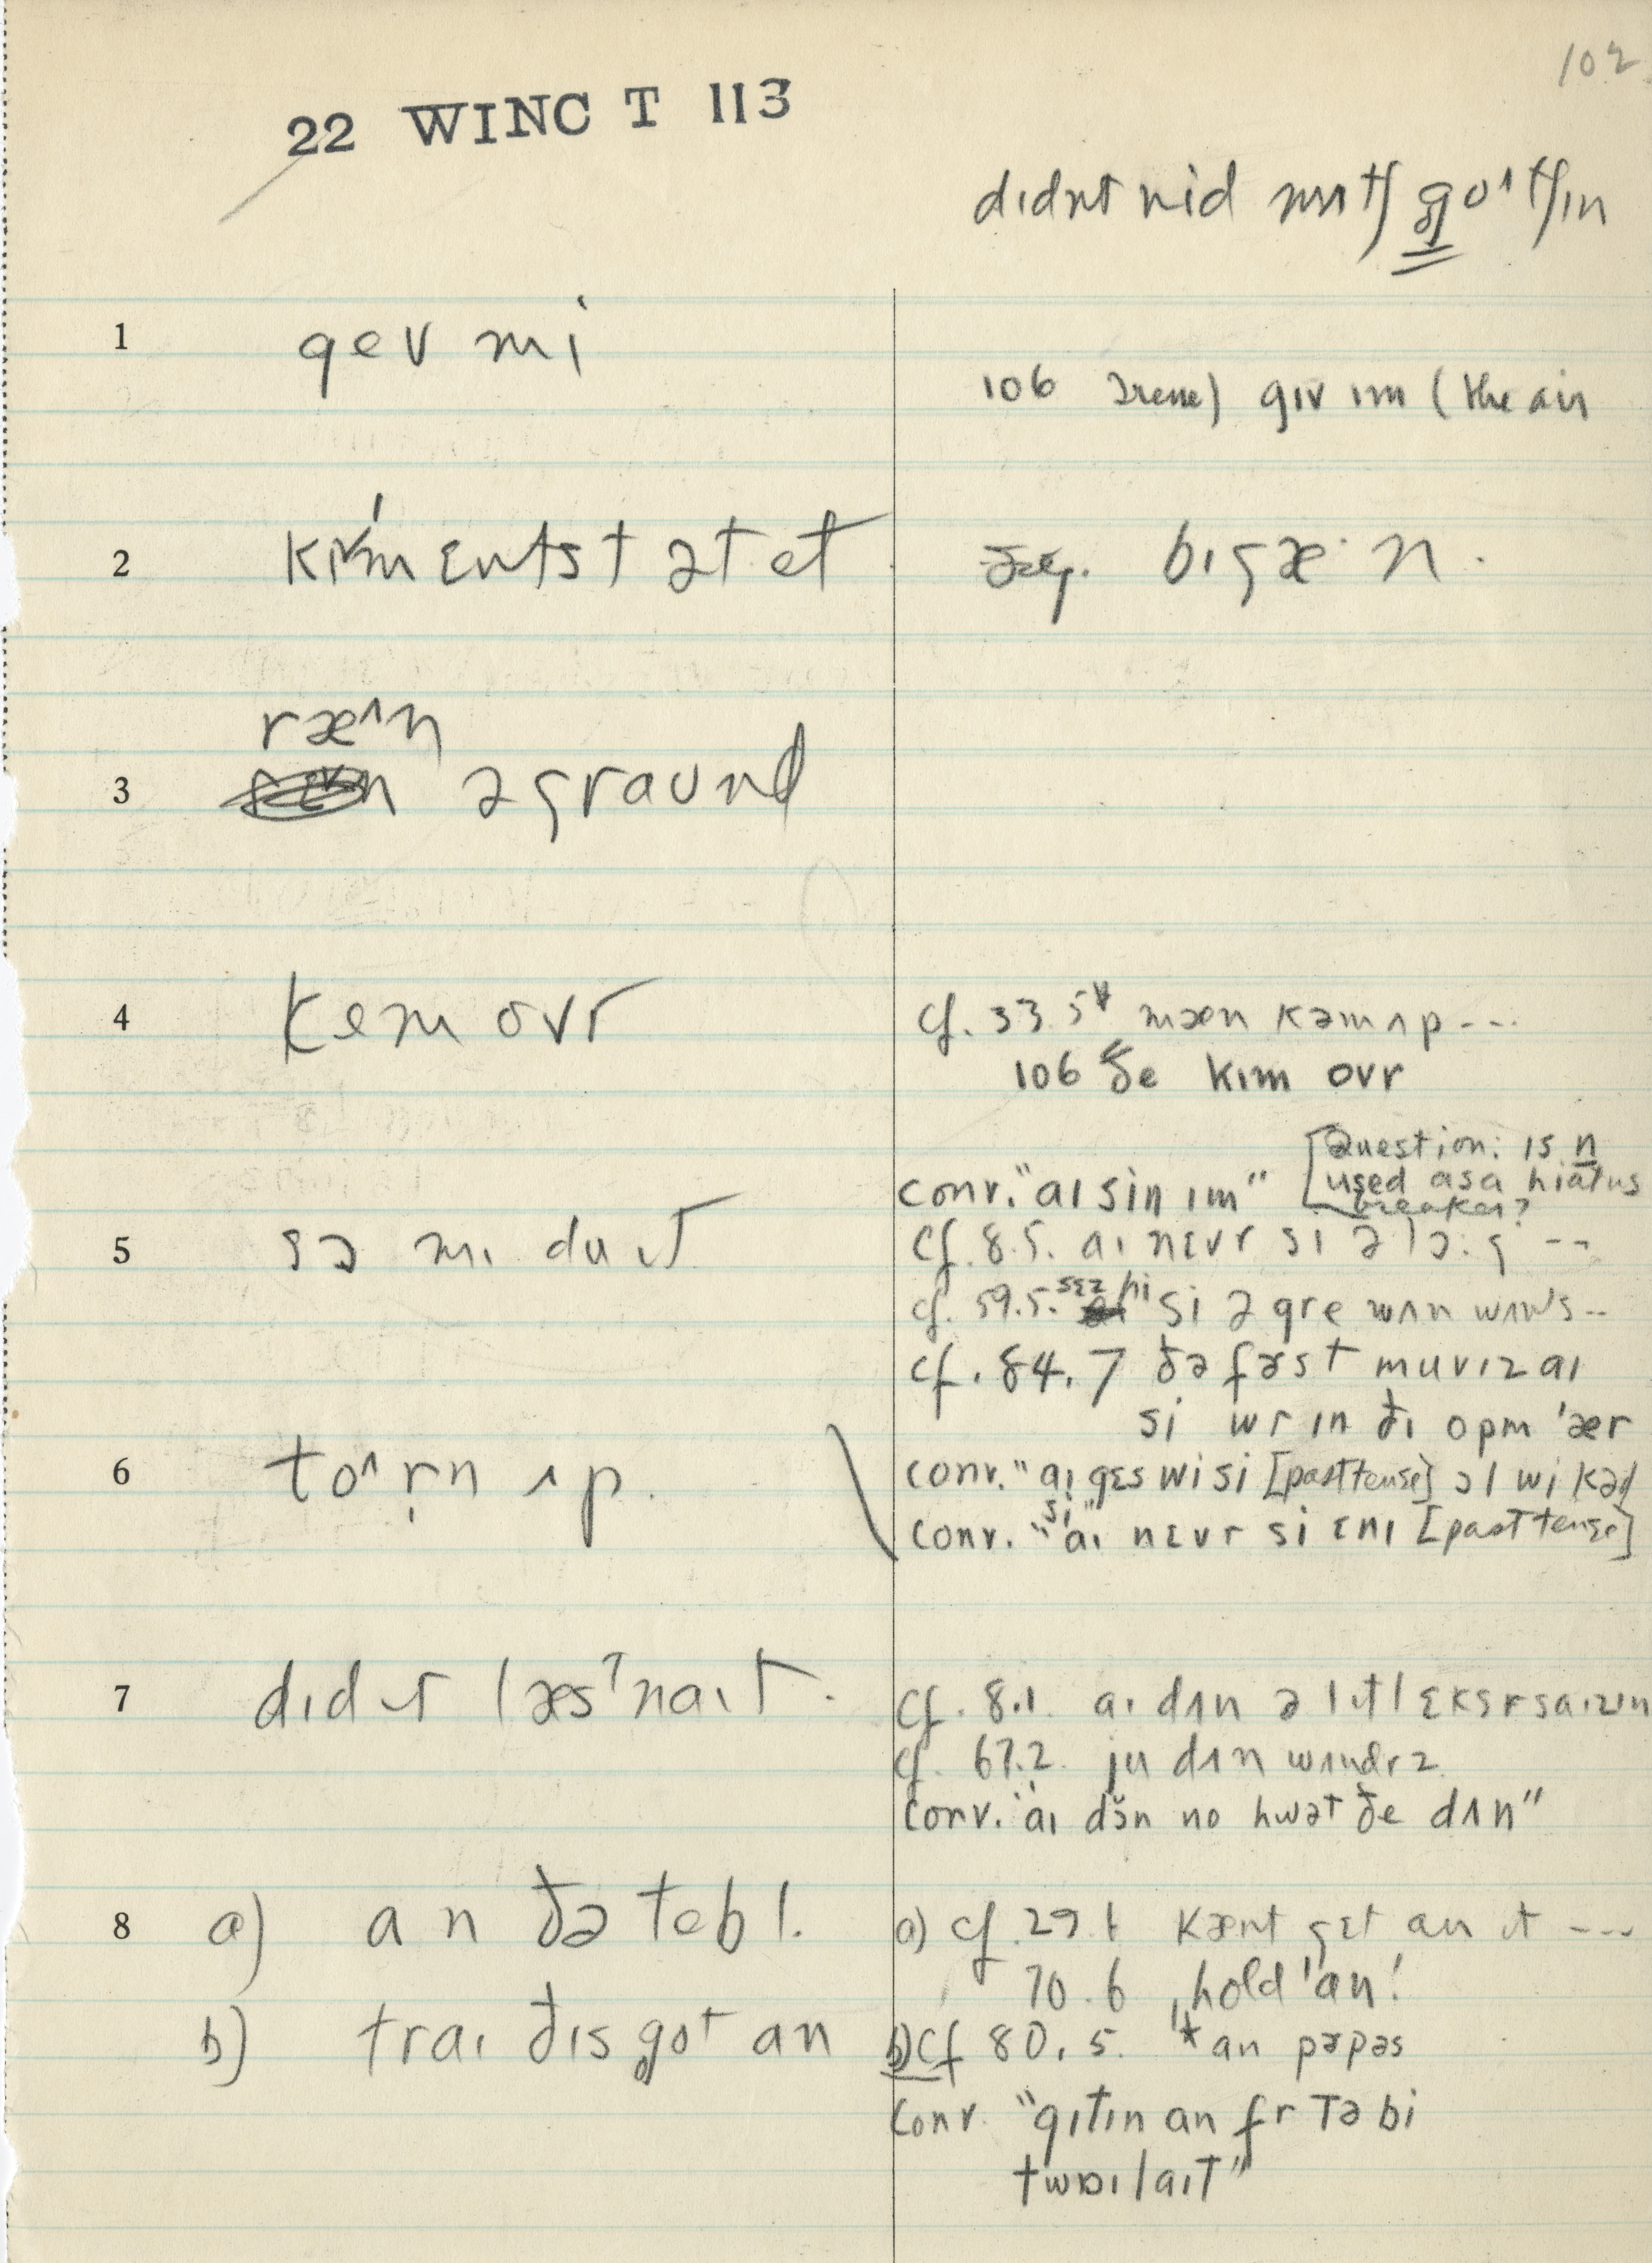 102
22 WINC T 113
dɪdnt nid mʌtʃ go^tʃɪn
1 gev mi
106 Irene) gɪv ɪm (the air
2 kɪmɛntstətet
bɪgæ·n.
ræ^n
3 əgraʊnd
4 kem ovr
cf. 33.5 mæn kəmʌp---
106 ðe kɪm ovr
[Question: is n
used as a hiatus
breaker?
conv. "aɪ sin ɪm"
5 sɔ mɪ du ɪt
cf. 8.5. aɪ nɛvr si ə lɔ:g --
cf. 59.5. sɛz hi si ə gre wʌn wʌns--
cf. 84.7 ðə fəst muvɪz aɪ
si wr ɪn ðɪ opm 'ær
6 to^rn ʌp.
conv. "aɪ gɛs wi si [past tense] ɔl wi kəd
conv. "aɪ nɛvr si ɛnɪ [past tense]
7 dɪd ɪt læs'naɪt.
cf. 8.1. aɪ dʌn ə lɪtl ɛksrsaɪzɪn
cf. 67.2. ju dʌn wʌndrz
conv. "aɪ dɔ̆n no hwət ðe dʌn"
8 a) an ðə tebl.
a) cf. 29.1 kænt gɛt an ɪt ---
70.6 ˌhold 'an!
b) traɪ ðɪs got an
b) cf 80.5. an pəpəs
conv. "gɪtɪn an fr tə bi
twaɪlaɪt"